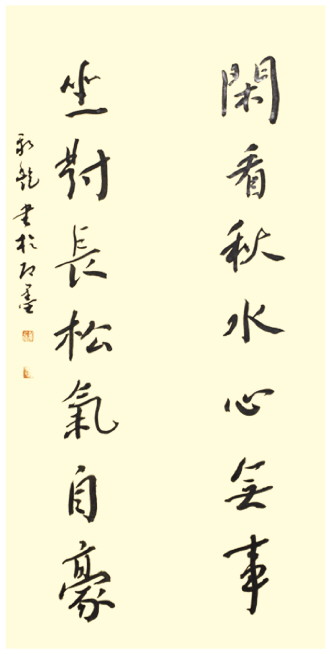 閑看秋水心無事
坐對長松氣自豪
龍書於即墨